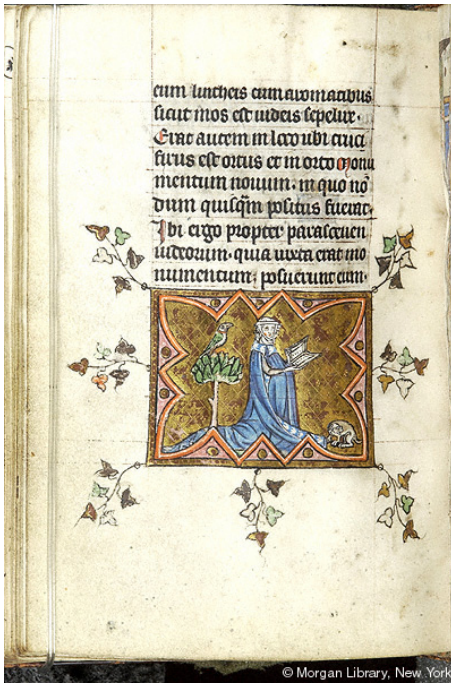 eum lintheis cum aromatibus
sicut mos est iudeis sepelire.
Erat autem in loco ubi cruci
fixus est ortus et in orto monu
mentum nouum. in quo nō
dum quisq̄m positus fuerat.
Ibi ergo propter parasceuen
iudeorum. quia iuxta erat mo
numentum: posuerunt eum.
© Morgan Library, New York